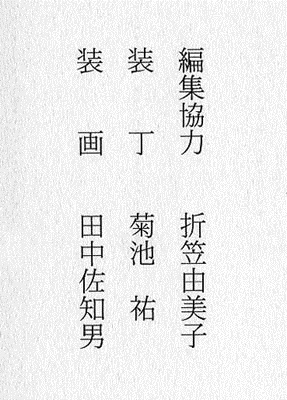 編集協力 折笠由美子
装丁 菊池祐
装画 田中佐知男